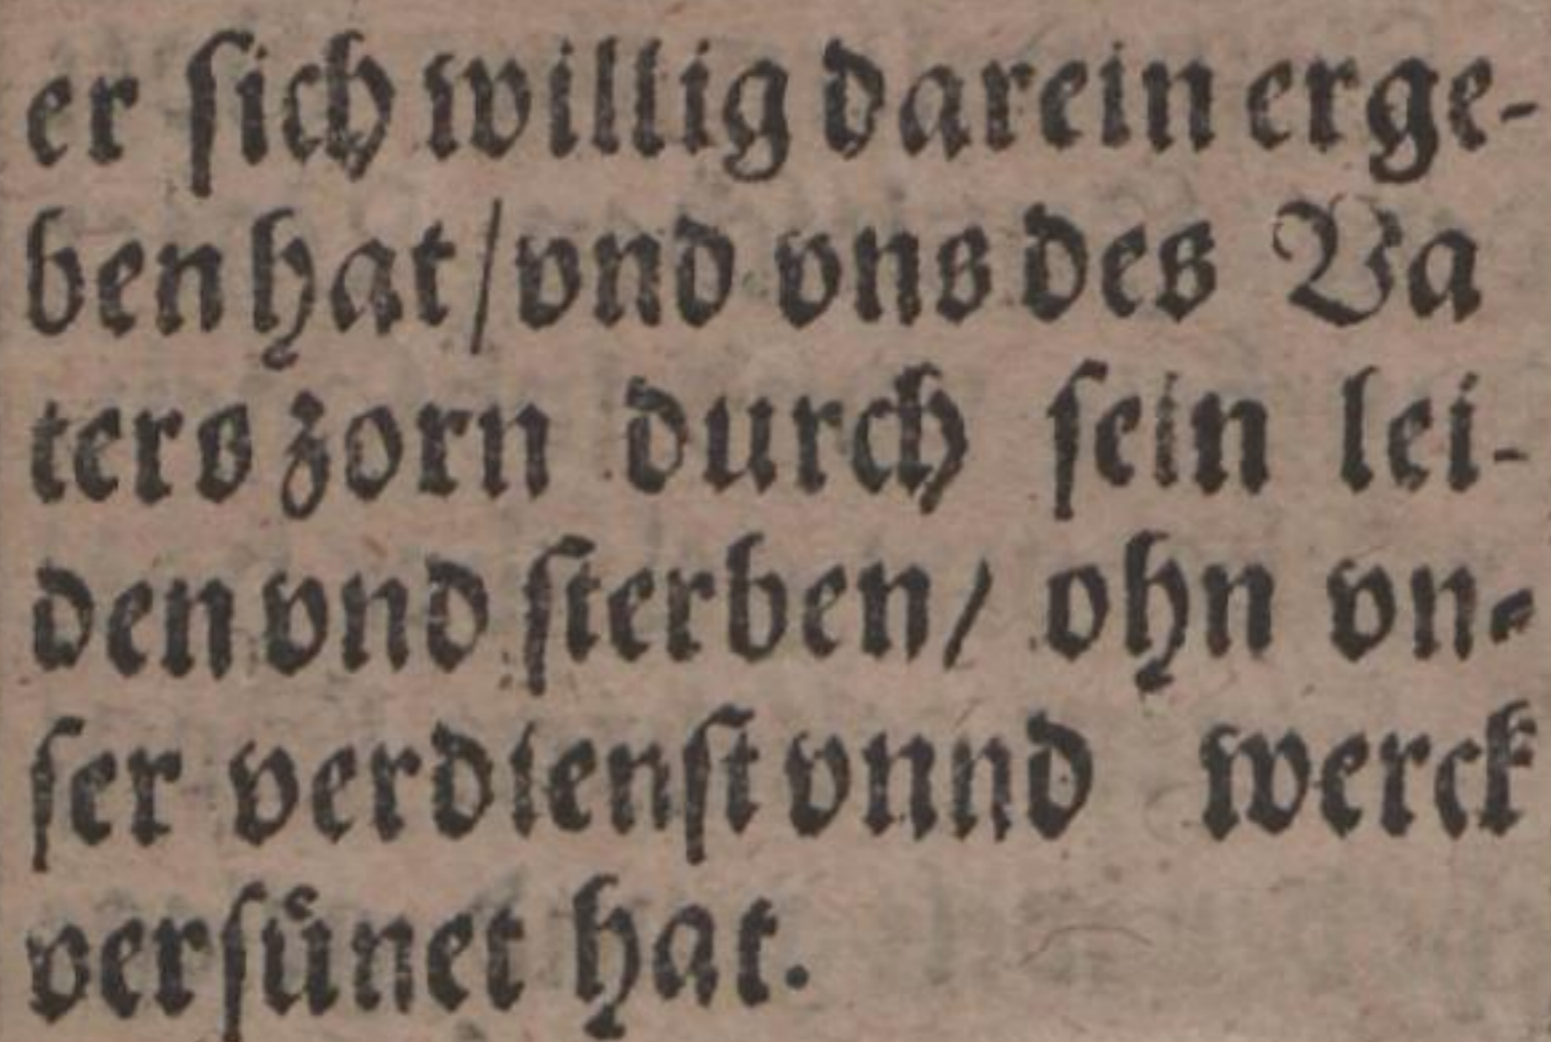 er ſich willig darein erge-
ben hat/ vnd vns des Va
ters zorn durch ſein lei-
den vnd ſterben/ ohn vn-
ſer verdienſt vnnd werck
verſuͤnet hat.